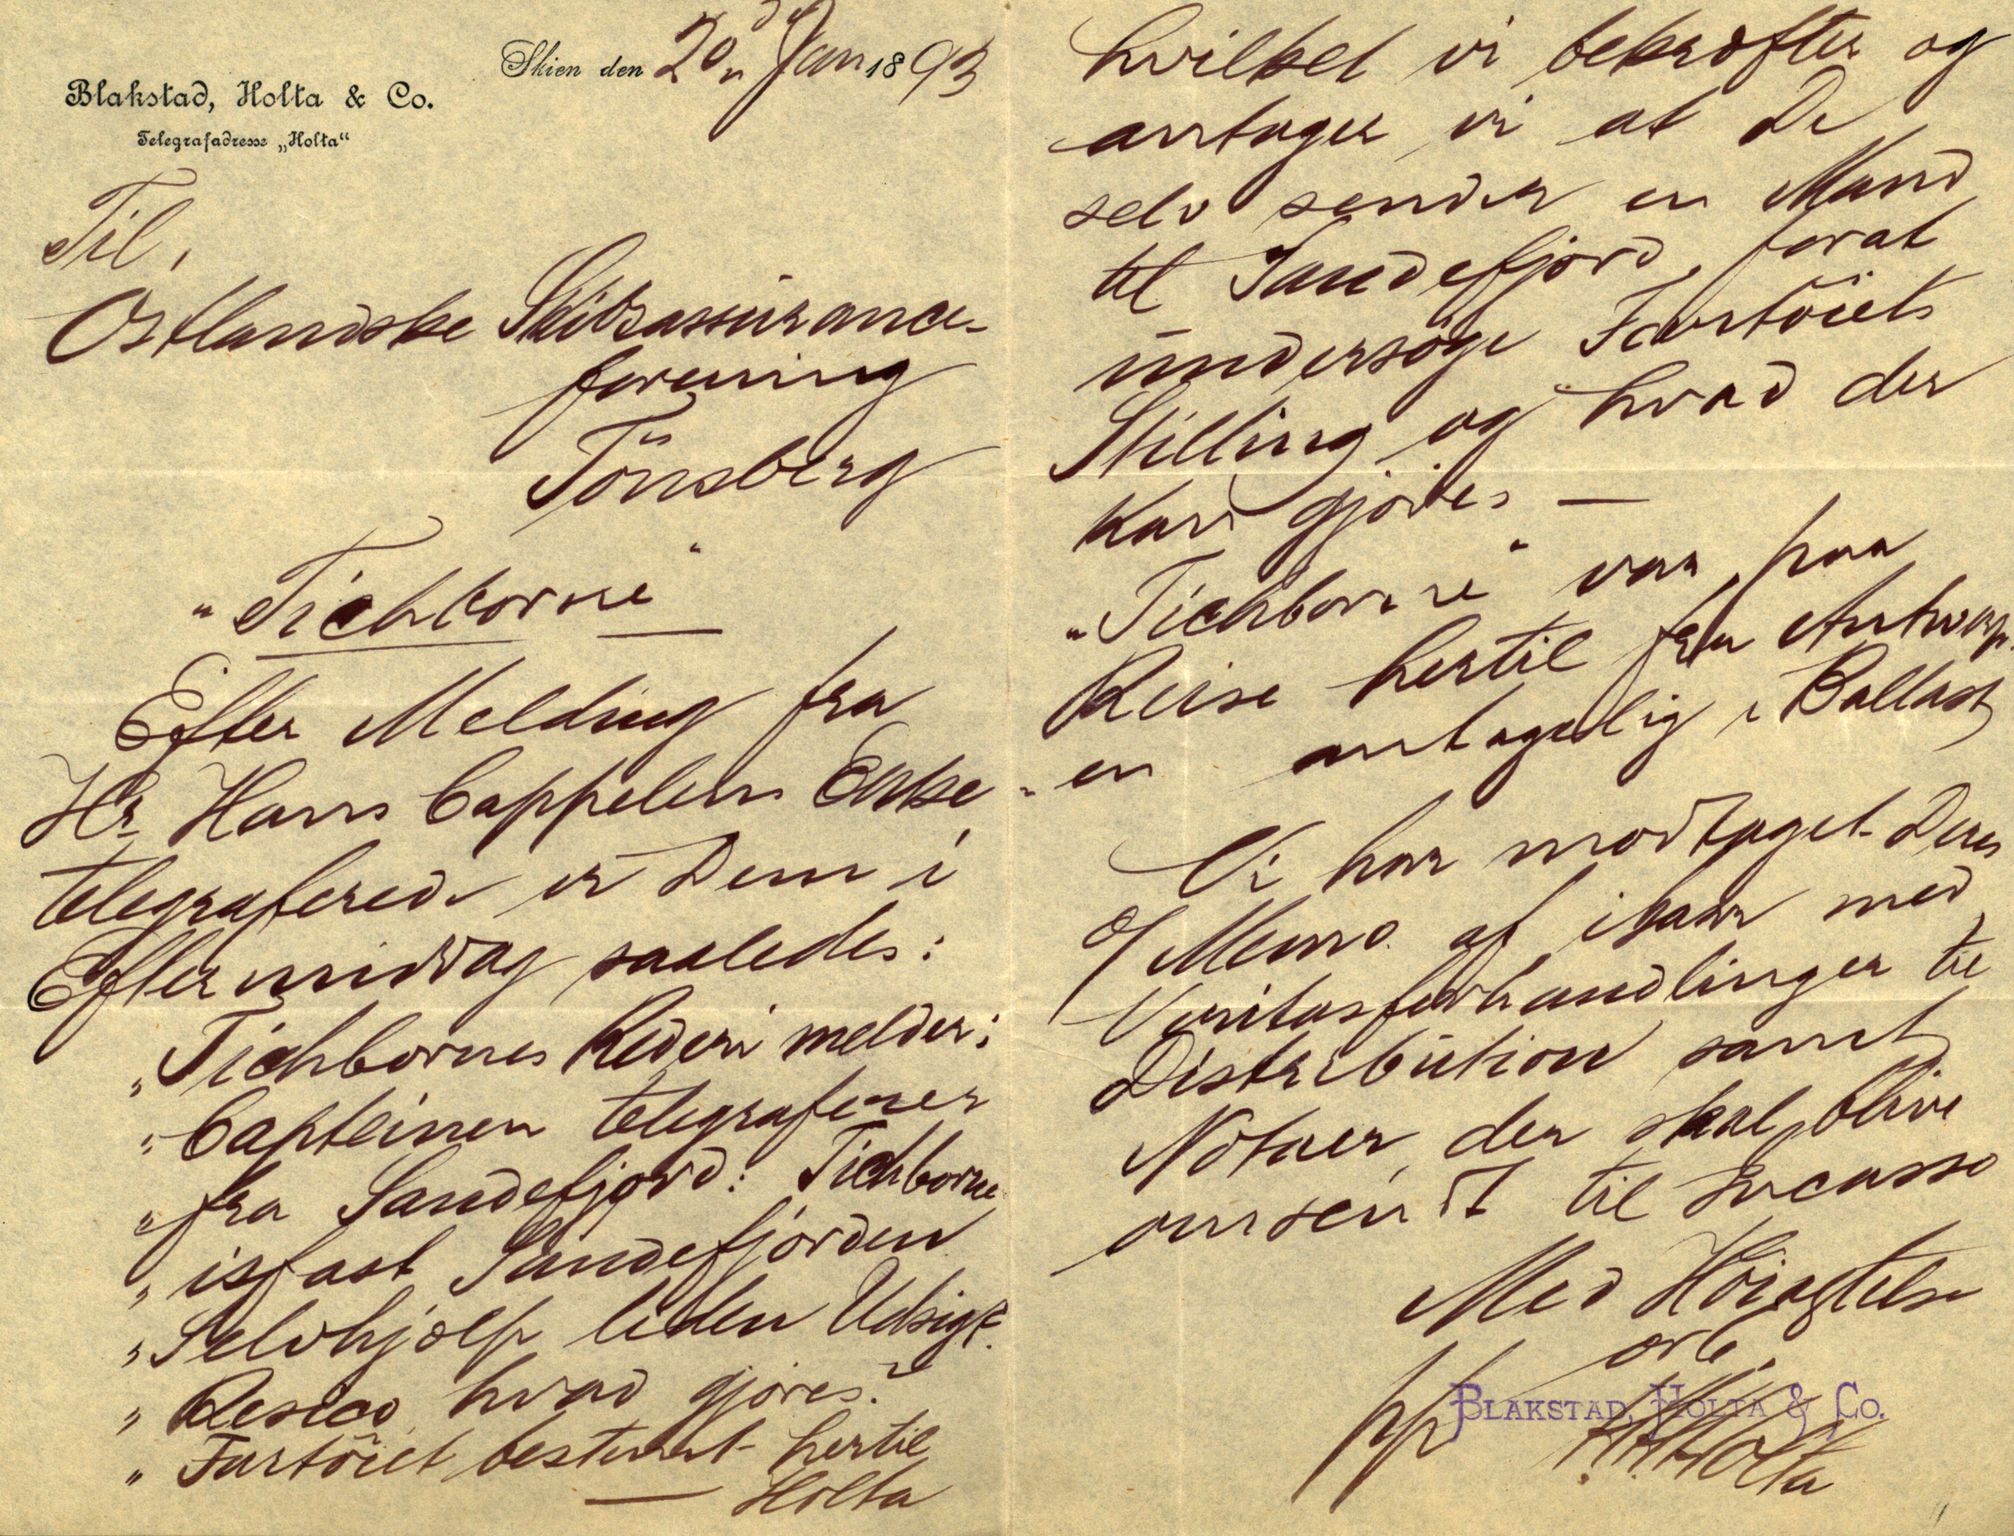 Blakstad, Holta & Co.
Telegrafadresse „Holta"
Skien den 20 Jan 1893
Til,
Østlandske Skibsassurance-
forening
Tönsberg
"Tichborne"
Efter Melding fra
Hr Hans Cappelens Enke
telegraferede vi Dem i
Eftermiddag saaledes:
"Tichbornes Rederi melder:
"Capteinen telegraferer
"fra Sandefjord: Tichborne
"isfast Sandefjorden
"Selvhjælp liden Udsigt.
"Resico, hvad gjøres?
"Fartöiet bestemt hertil
— Holta
hvilket vi bekræfter og
antager vi at De
selv sender en Mand
til Sandefjord, forat
undersöge Fartöiets
Stilling og hvad der
kan gjöres —
"Tichborne" var paa
Reise hertil fra Antwerp-
-en antagelig i Ballast
Vi har modtaget Deres
Memo. af igaar med
Veritasforhandlinger til
Distribution samt
Notaer, der skal blive
omsendt til Incasso
Med Höiagtelse
pp BLAKSTAD, HOLTA & Co.
Holta